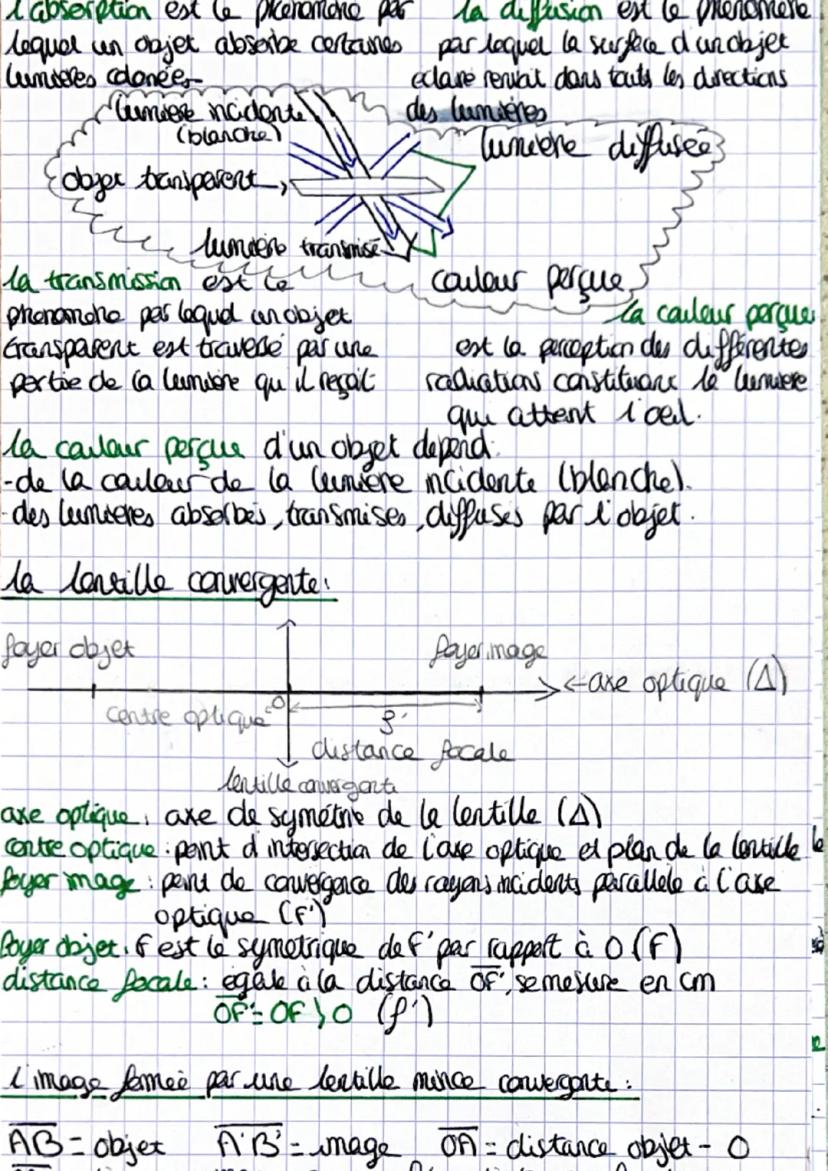 l'absorption est le phénomène par
lequel un objet absorbe certaines
lumières colorées
la diffusion est le phénomène
par lequel la surface d'un objet
éclairé renvoit dans touts les directions
des lumières
lumière incidente
(blanche)
objet transparent
lumière transmise
lumière diffusée
couleur perçue
la transmission est le
phénomène par lequel un objet
transparent est traversé par une
partie de la lumière qu'il reçoit
la couleur perçue
est la perception des différentes
radiations constituant la lumière
qui attent l'oeil.
la couleur perçue d'un objet dépend:
-de la couleur de la lumière incidente (blanche).
-des lumières absorbés, transmises, diffusés par l'objet.
la lentille convergente:
foyer objet
foyer image
axe optique (Δ)
centre optique
O
f'
distance focale
lentille convergente
axe optique: axe de symétrie de la lentille (Δ)
centre optique: point d'intersection de l'axe optique et plan de la lentille
foyer image: point de convergence des rayons incidents parallèle à l'axe
optique (F')
foyer objet: F est le symétrique de F' par rapport à O (F)
distance focale: égale à la distance OF', se mesure en cm
OF'= OF > O (f')
l'image formée par une lentille mince convergente:
AB = objet A'B' = image OA = distance objet - O